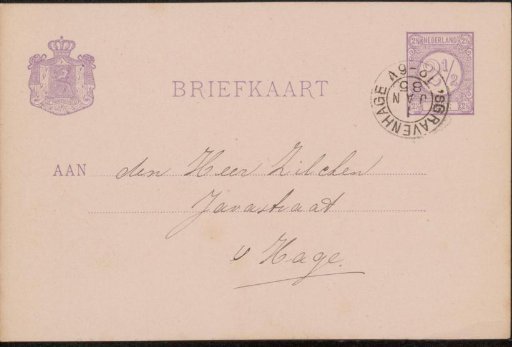 NEDERLAND
2½
BRIEFKAART
'SGRAVENHAGE
JAN
86
AAN den Heer Zilcken
Javastraat
s Hage.